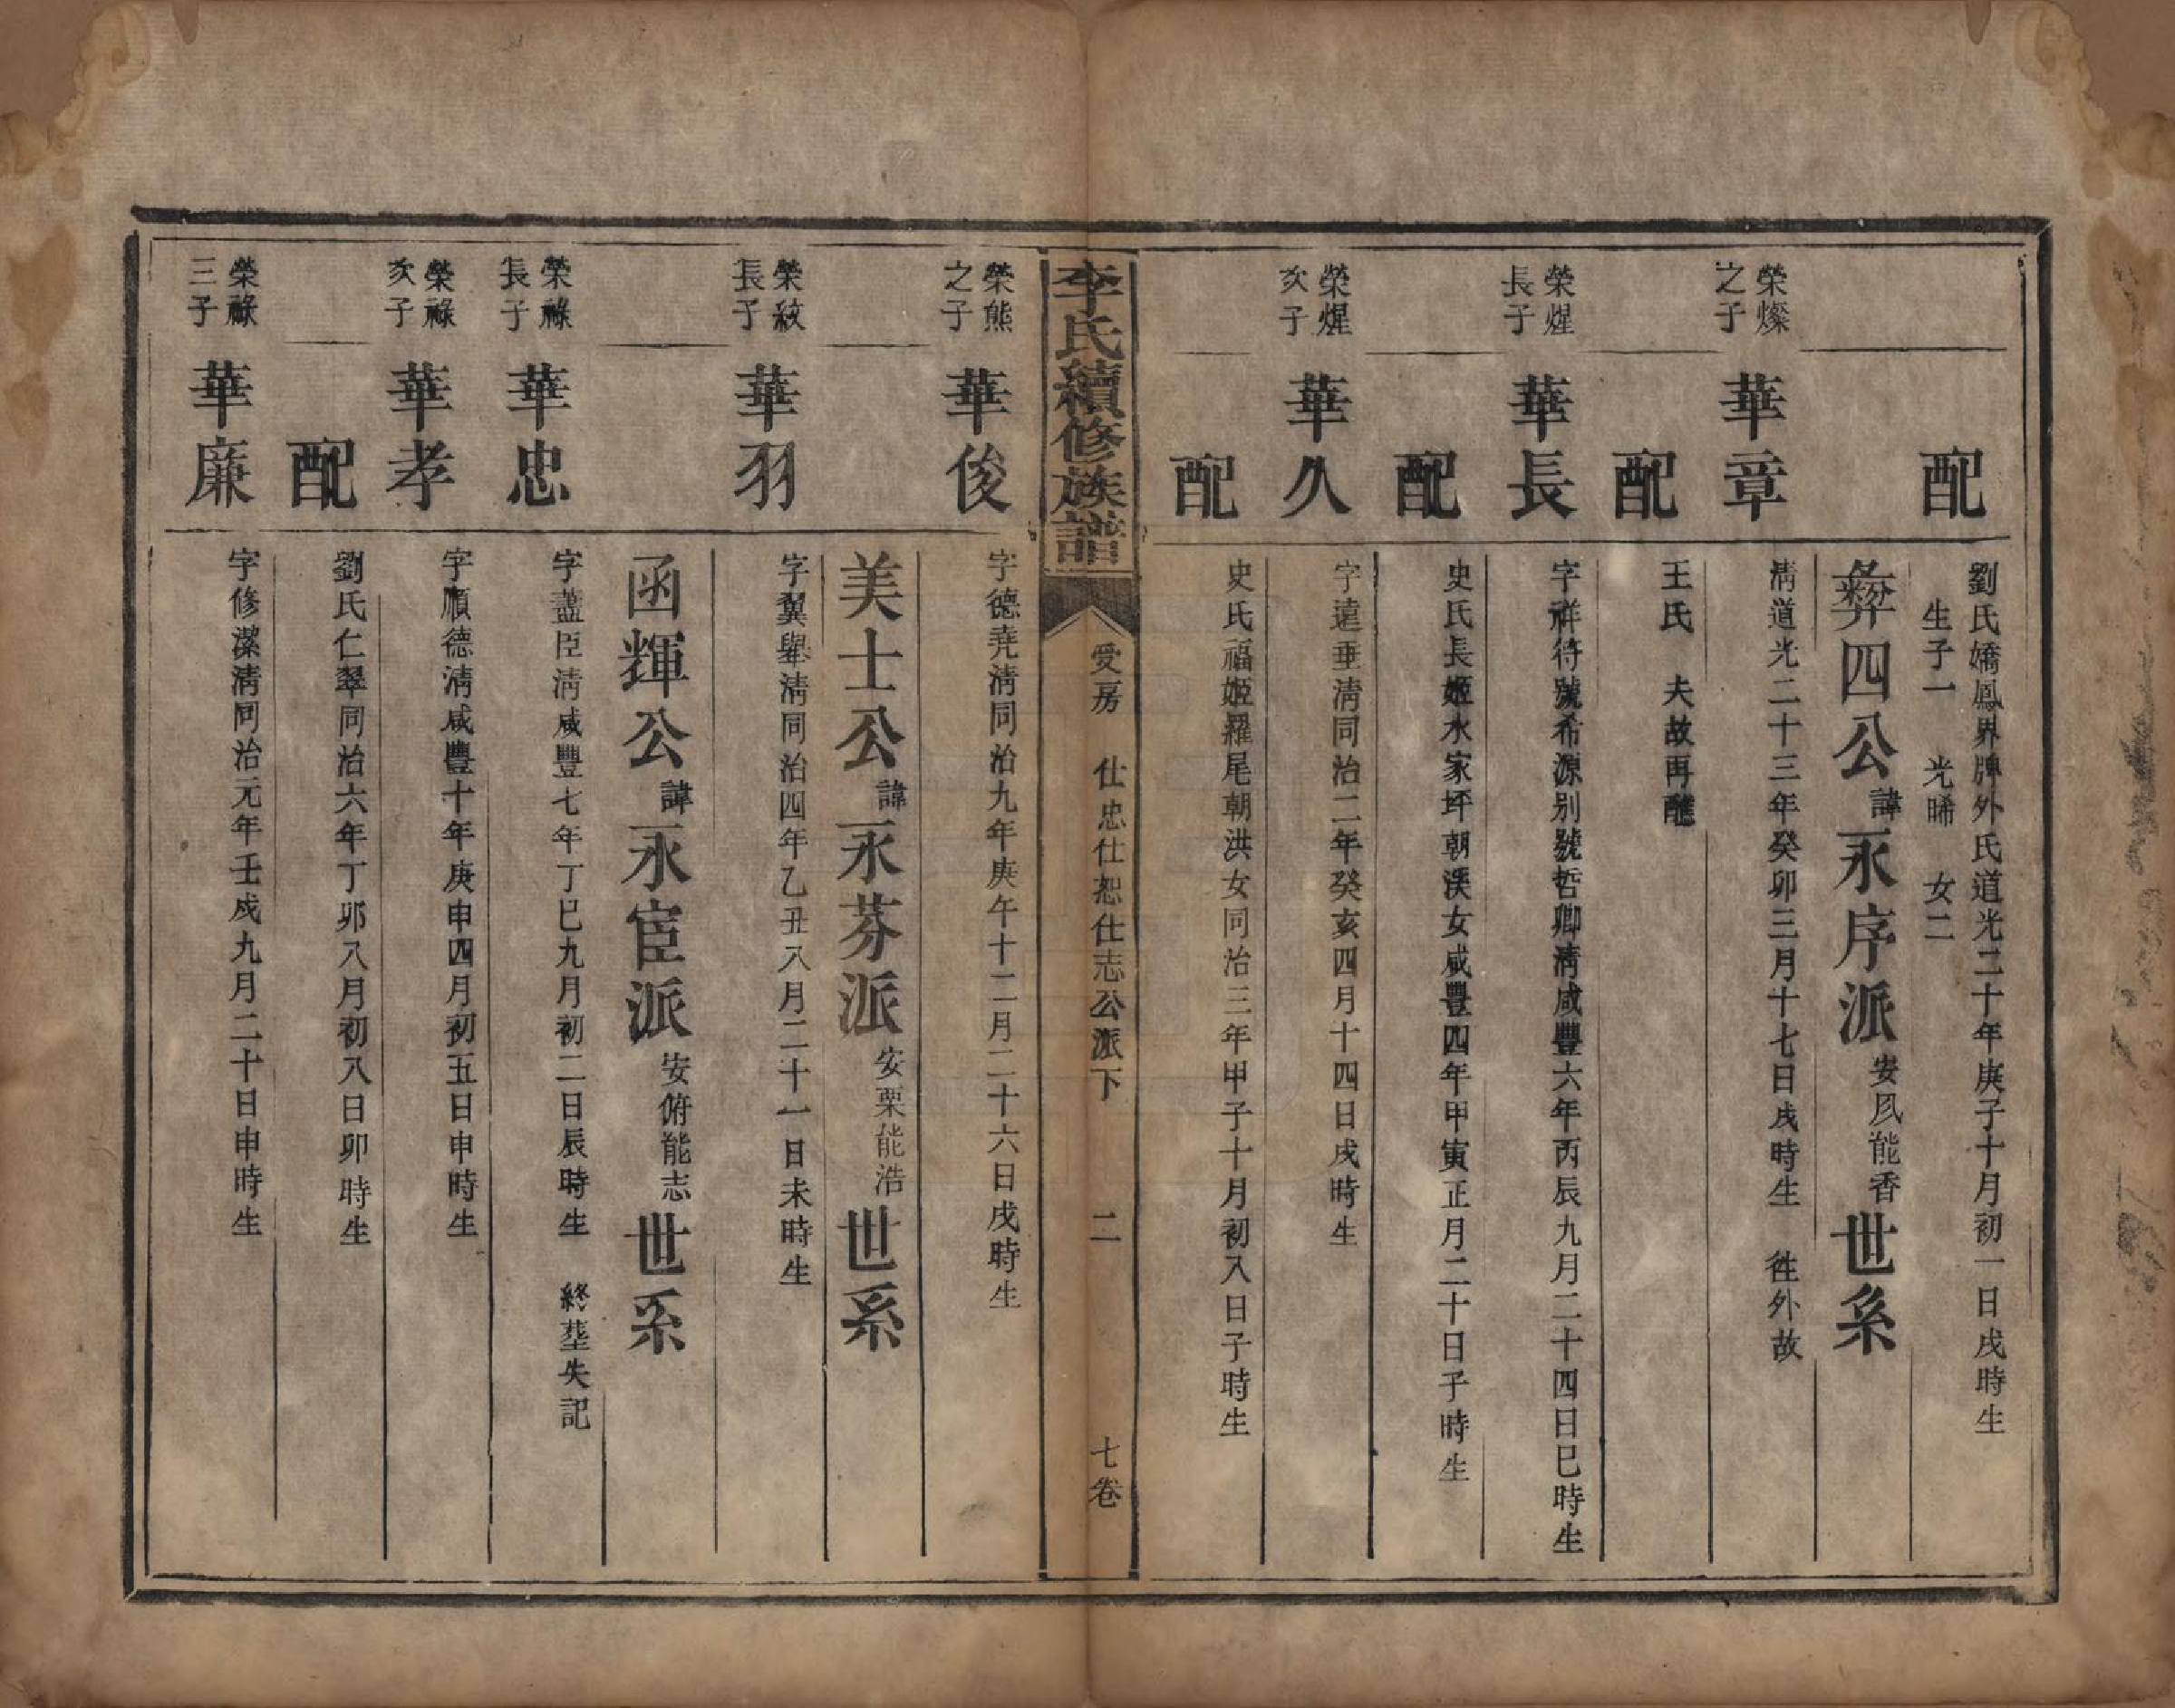 配
劉氏嬌鳳界牌外氏道光二十年庚子十月初一日戌時生
生子一　光晞　女二
彜四公諱永序派安凨能香世系
榮燦之子
華章
淸道光二十三年癸卯三月十七日戌時生　徃外故
配
王氏　夫故再醮
榮煋長子
華長
字祥符號希源别號哲卿淸咸豐六年丙辰九月二十四日巳時生
配
史氏長姬水家坪朝渓女咸豐四年甲寅正月二十日子時生
榮煋次子
華久
字遠垂淸同治二年癸亥四月十四日戌時生
配
史氏福姬羅尾朝洪女同治三年甲子十月初八日子時生
李氏續修族譜
受房　仕忠仕恕仕志公派下　二　七卷
榮熊之子
華俊
字德堯淸同治九年庚午十二月二十六日戌時生
美士公諱永芬派安栗能浩世系
榮紋長子
華羽
字翼舉淸同治四年乙丑八月二十一日未時生
函輝公諱永宦派安俯能志世系
榮祿長子
華忠
字藎臣淸咸豐七年丁巳九月初二日辰時生　終塟失記
榮祿次子
華孝
字順德淸咸豐十年庚申四月初五日申時生
配
劉氏仁翠同治六年丁卯八月初八日卯時生
榮祿三子
華廉
字修潔淸同治元年壬戌九月二十日申時生